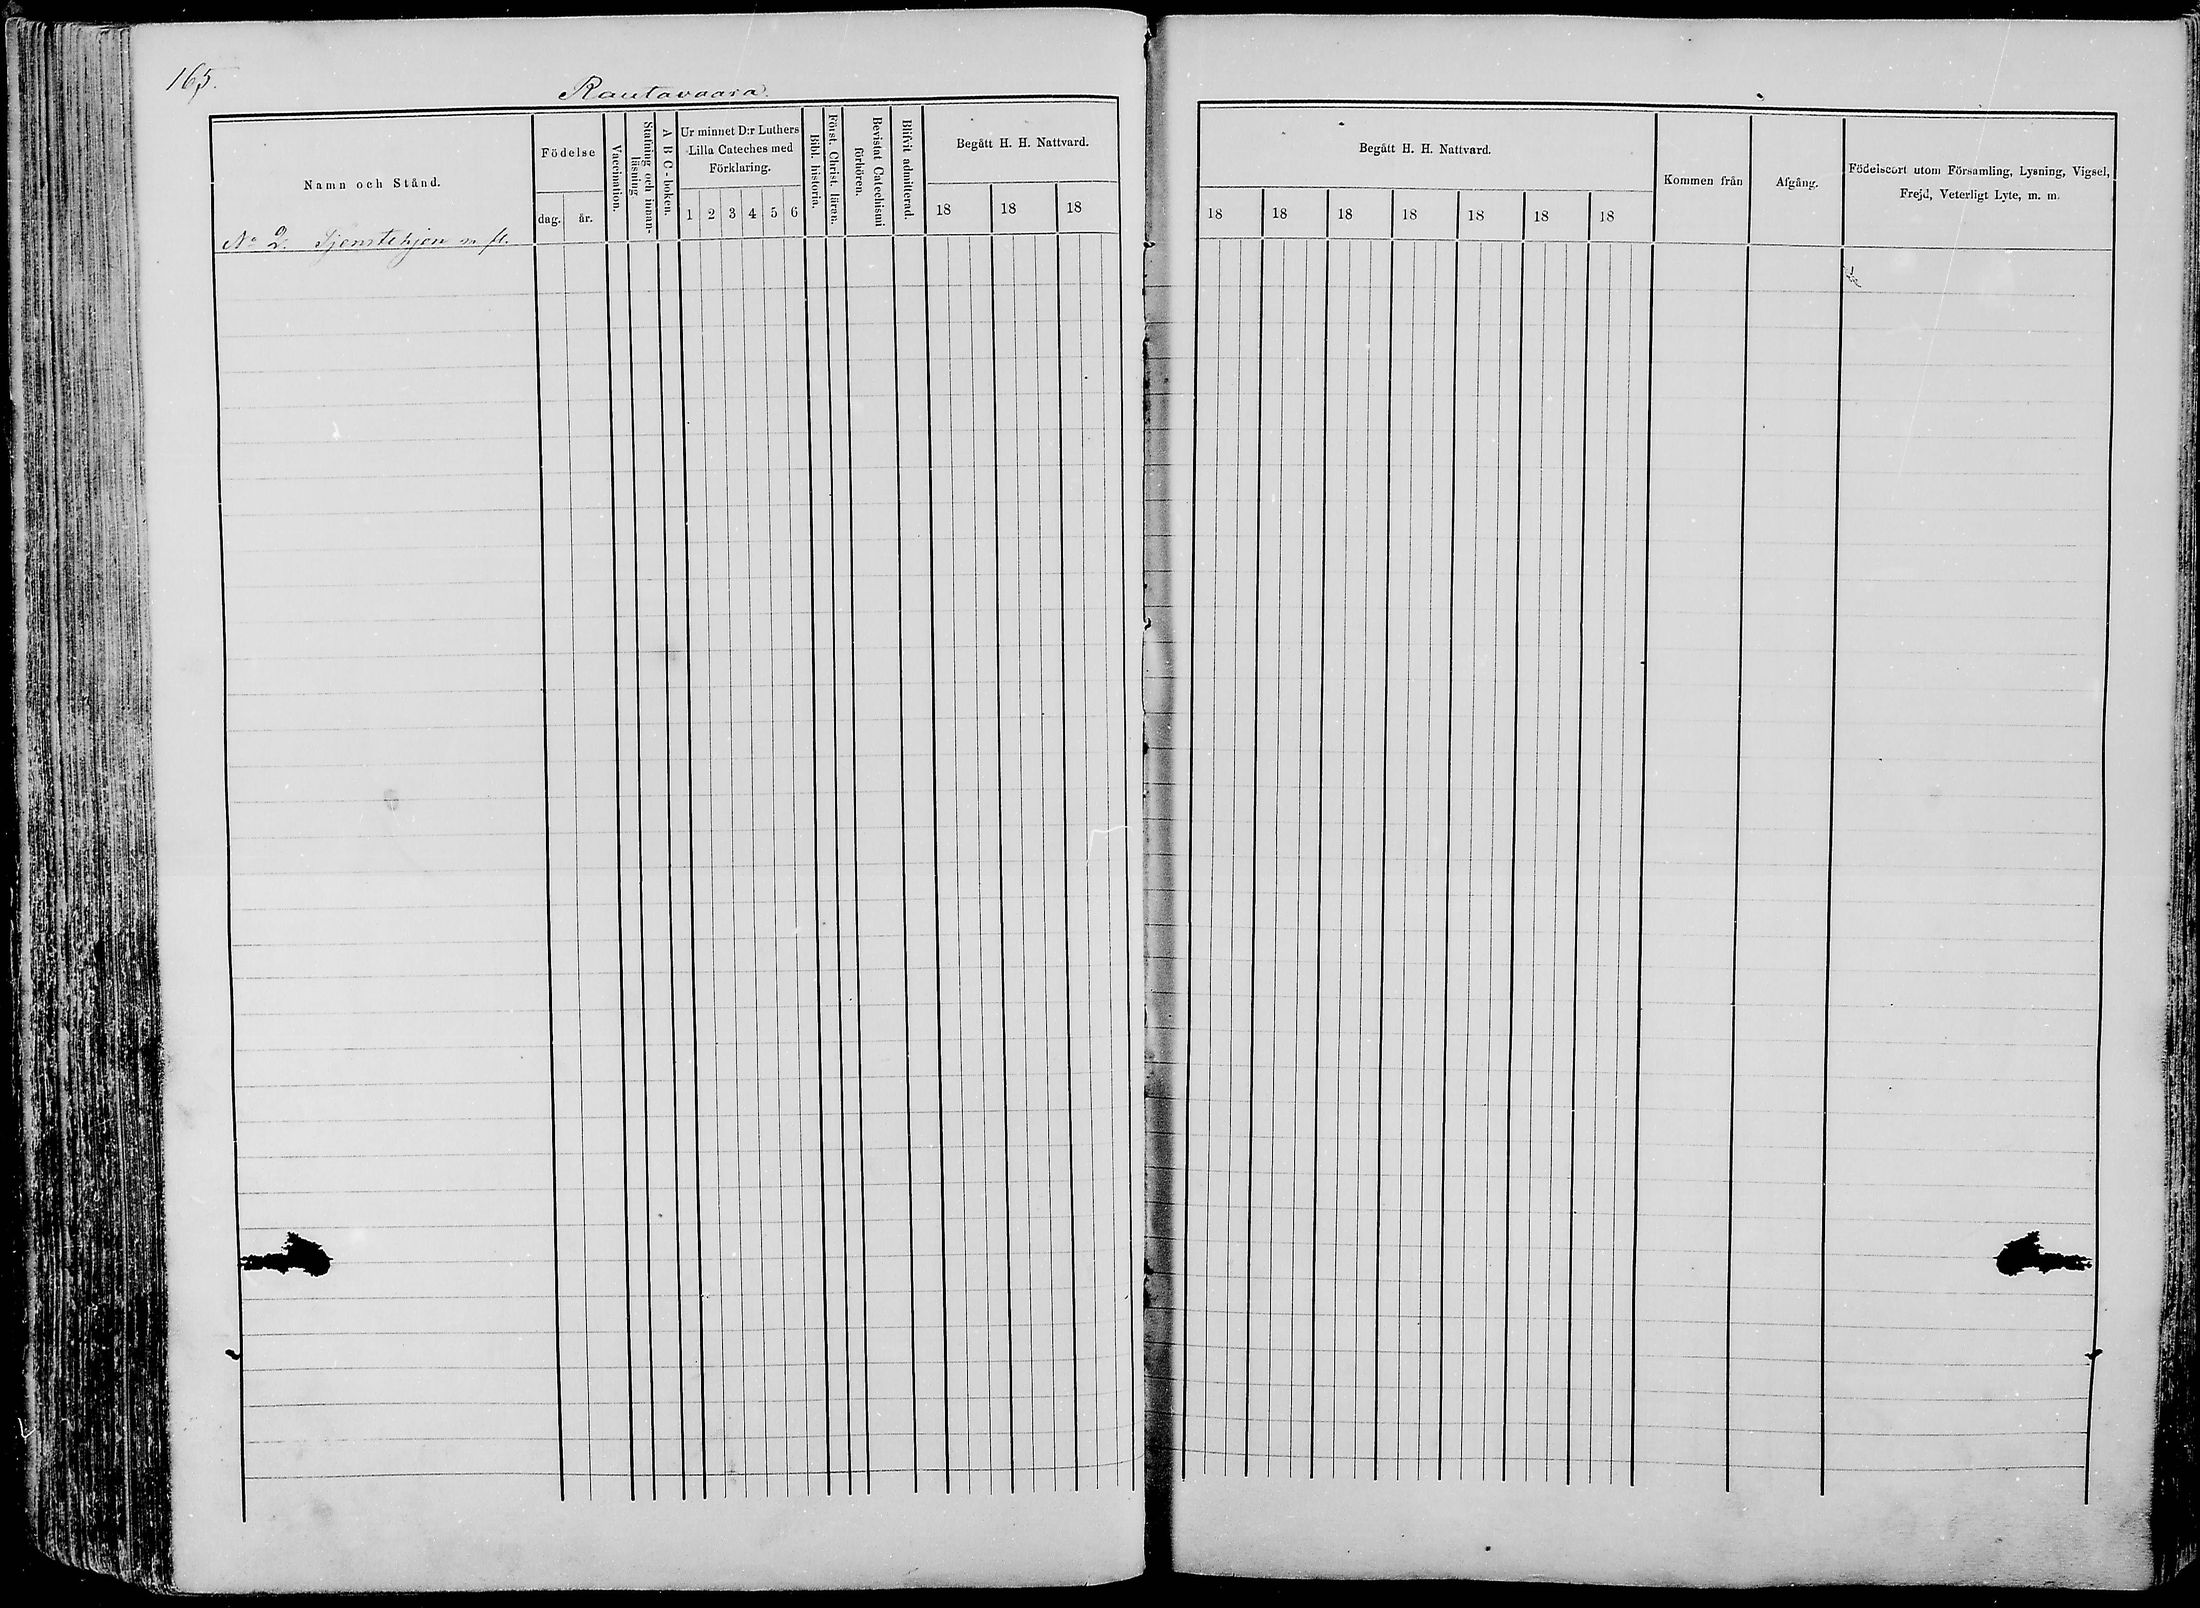 165.
Rautavaara.
Namn och Stånd.
Födelse
dag.
år.
Vaccination.
Stafning och innan-
läsning.
A B C - boken.
Ur minnet D:r Luthers
Lilla Cateches med
Förklaring.
1 2 3 4 5 6
Bibl. historia.
Först. Christ. läran.
Bevistat Catechismi
förhören.
Blifvit admitterad.
Begått H. H. Nattvard.
18 18 18
No 2. Tjenstehjon m fl.
Begått H. H. Nattvard.
18 18 18 18 18 18 18
Kommen från
Afgång.
Födelseort utom Församling, Lysning, Vigsel,
Frejd, Veterligt Lyte, m. m.